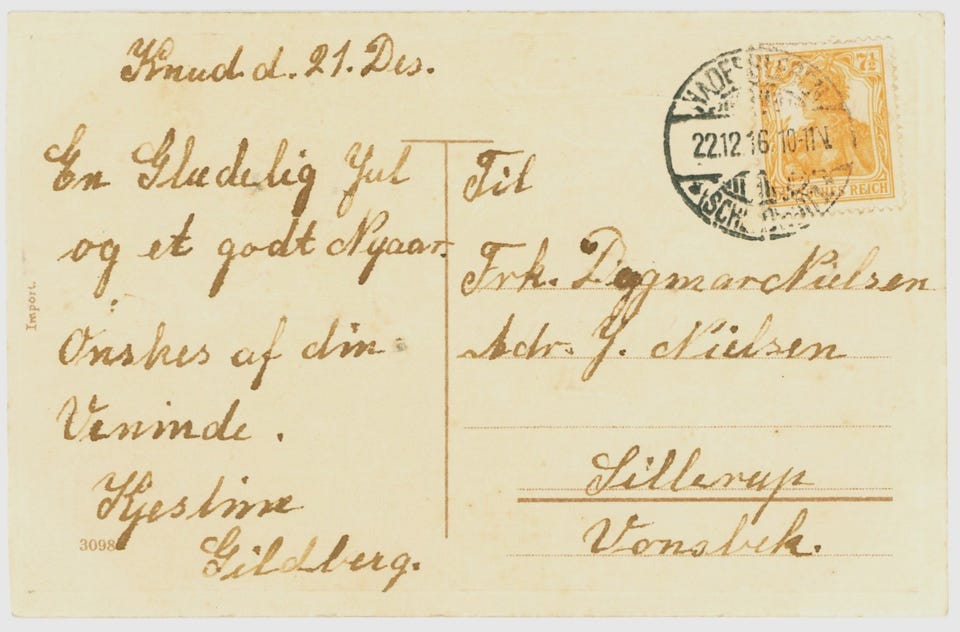 Knud d. 21. Des.
En Glædelig Jul
og et godt Nyaar.
Ønskes af din
Veninde.
Kjestine
Gildberg.
Til
Frk. Dagmar Nielsen
Adr. J. Nielsen
Sillerup
Vonsbek.
Import.
3098
7½
22.12.16.10-11V.
HADERSLEBEN
(SCHLESWIG)
REICH